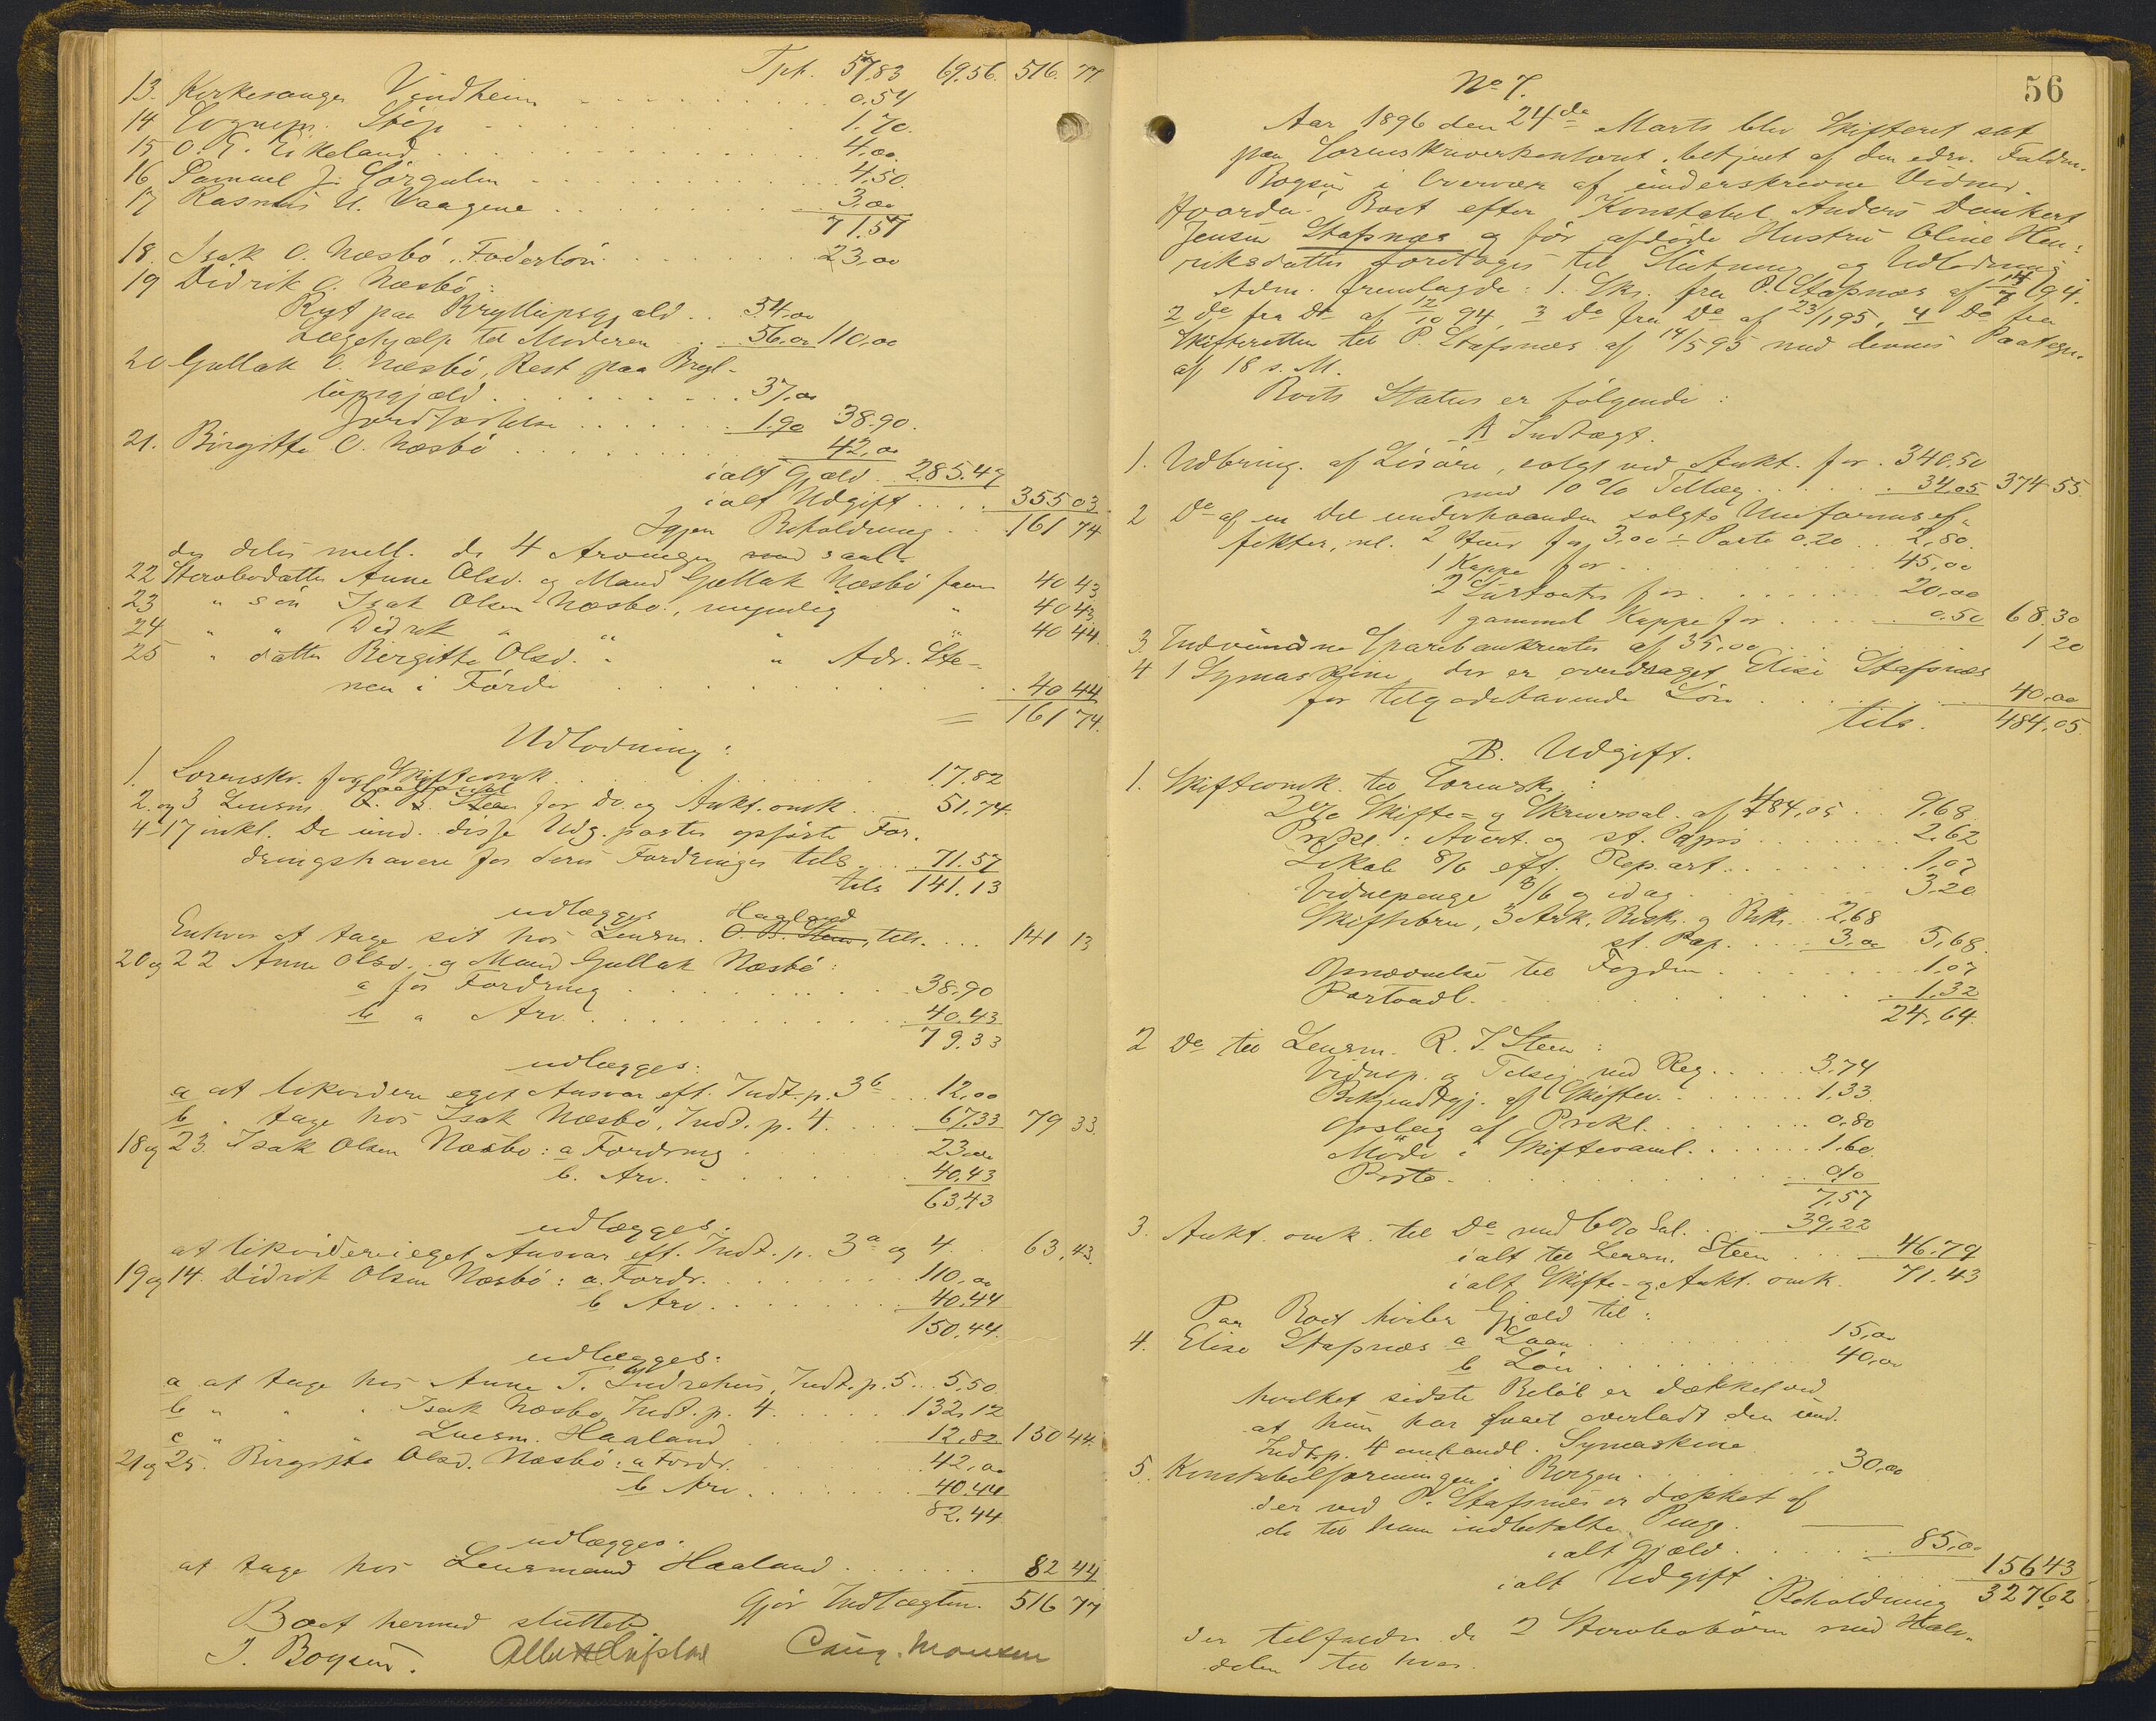 Tpt. 57,83 69.56. 516. 77
13. Kirkesanger Vindheim . . . 0,54
14 Sognepr. Støp . . . 1.70.
15 O. E. Eikeland . . . 4,00
16 Samuel J. Sørgulen . . . 4,50.
17 Rasmus U. Vaagene . . . 3,00
71.57
18. Isak O. Næsbø, Foderløn . . . 23,00
19 Didrik O. Næsbø:
Rest paa Bryllupsgjæld . . 54,00
Lægehjælp til Moderen . . 56,00 110,00
20 Gullak O. Næsbø, Rest paa Bryl-
lupsgjæld . . . 37,00
Jordfæstelse . . . 1.90 38.90.
21. Birgitte O. Næsbø . . . 42,00
ialt Gjæld . 285.47
ialt Udgift . . . 355 03
Igjen Beholdning . . 161 74
der deles mell. de 4 Arvinger med saal.
22 Sterbodatter Anne Olsd. og Mand Gullak Næsbø faar 40 43
23 " søn Isak Olsen Næsbø, myndig " 40 43
24 " " Didrik " " " " 40 44
25 " datter Bergitte Olsd. " " Adr. Ste-
nen i Førde . . . 40 44
= 161 74.
Udlodning:
1. Sorenskr. for Skifteomk. . . . 17.82
2. og 3 Lensm. Haaland for do. og Aukt. omk . . 51,74
4-17 inkl. De und. disse Udg. poster opførte For-
dringshavere for deres Fordringer tils. . . 71.57
tils 141.13
udlægges Haaland
Enhver at tage sit hos Lensm. O. B. Steen, tils. . . . 141 13
20 og 22 Anne Olsd. og Mand Gullak Næsbø:
a for Fordring . . . 38,90
b " Arv . . . 40.43
79.33
udlægges:
a at likvidere eget Ansvar eft. Indt. p. 3b . . 12,00
b . tage hos Isak Næsbø, Indt. p. 4. . . . 67,33 79 33.
18 og 23. Isak Olsen Næsbø: a Fordring . . . 23,00
b. Arv. . . . 40,43
63,43
udlægges.
at likvidere i eget Ansvar eft. Indt. p. 3a og 4 . . 63,43.
19 og 14. Didrik Olsen Næsbø: a. Fordr. . . . 110,00
b Arv. . . . 40.44
150.44.
udlægges:
a at tage hos Anne T. Indrehus, Indt. p. 5 . . 5,50
b " " " Isak Næsbø, Indt. p. 4. . . . 132,12
c " " " Lensm. Haaland . . . 12,82 150 44.
21 og 25. Birgitte Olsd. Næsbø: a Fordr. . . . 42,00
b Arv . . . 40.44
82.44
udlægges:
at tage hos Lensmand Haaland . . . 82 44
Gjør Indtægten. 516 77
Boet hermed sluttet
J. Boysen. Conr. Monsen
56
No 7.
Aar 1896 den 24de Marts blev Skifteret sat
paa Sorenskriverkontoret, betjent af den edsv. Fuldm.
Boysen i Overvær af underskrevne Vidner.
Hvorda: Boet efter Konstabel Anders Dankert
Jensen Stafsnæs og før afdøde Hustru Oline Hen-
riksdatter foretoges til Slutning og Udlodning
Adm. fremlagde: 1. Skr. fra P. Stafsnæs af 14/7 94.
2 do fra Do af 12/10 94, 3 Do fra Do af 23/1 95, 4 Do fra
Skifteretten til P. Stafsnæs af 14/5 95 med dennes Paategn.
af 18 s. M.
Boets Status er følgende:
A Indtægt.
1. Udbring. af Løsøre, solgt ved Aukt. for . 340,50
med 10 % Tillæg . . . 34,05 374 55
2 Do af en Del underhaanden solgte Uniformsef-
fekter, nl. 2 Huer for 3,00 ÷ Porto 0.20 . . 2,80.
1 Kappe for . . . 45,00
2 Surtouter for . . . 20,00
1 gammel Kappe for . . . 0.50 68.30
3. Indvundne Sparebankrenter af 35,00 . . . 1 20
4 1 Symaskine, der er overdraget Elise Stafsnæs
for tilgodehavende Løn . . . 40,00
tils. 484,05.
B. Udgift.
1. Skifteomk. til Sorenskr.:
2 % Skifte- og Skriversal. af 484,05 . . 9,68
Prokl.: Avert. og st. Papir . . . 2,62
Lokale 8/6 eft. Repart. . . . 1,07
Vidnepenge 8/6 og idag . . . 3.20
Skiftebrev, 3 Ark, Besk. og Beks. . . 2,68
st. Pap. . . . 3,00 5,68.
Opnævnelse til Fogden . . . 1,07
Portoudl. . . . 1,32
24,64.
2 Do til Lensm. R. J. Steen:
Vidnep. og Tilsig. ved Reg. . . . 3,74
Bekjendtgj. af Skiften . . . 1,33
Opslag af Prokl. . . . 0,80
Møde i Skiftesaml. . . . 1.60
Porto . . . 0,10
7,57
3. Aukt. omk. til Do med 6 % Sal. . . . 39,22
ialt til Lensm. Steen . . . 46.79
ialt Skifte- og Aukt. omk. 71.43
Paa Boet hviler Gjæld til:
4. Elise Stafsnæs a Laan . . . 15,00
b Løn . . . 40,00
hvilket sidste Beløb er dækket ved
at hun har faaet overladt den und.
Indt. p. 4 omhandl. Symaskine
5. Konstabelforeningen i Bergen . . . 30,00
der ved P. Stafsnæs er dækket af
de til ham indbetalte Penge.
ialt Gjæld . . . 85,00
ialt Udgift . . . 156 43
Beholdning 327 62
der tilfalder de 2 Sterbobørn med Halv-
delen til hver.